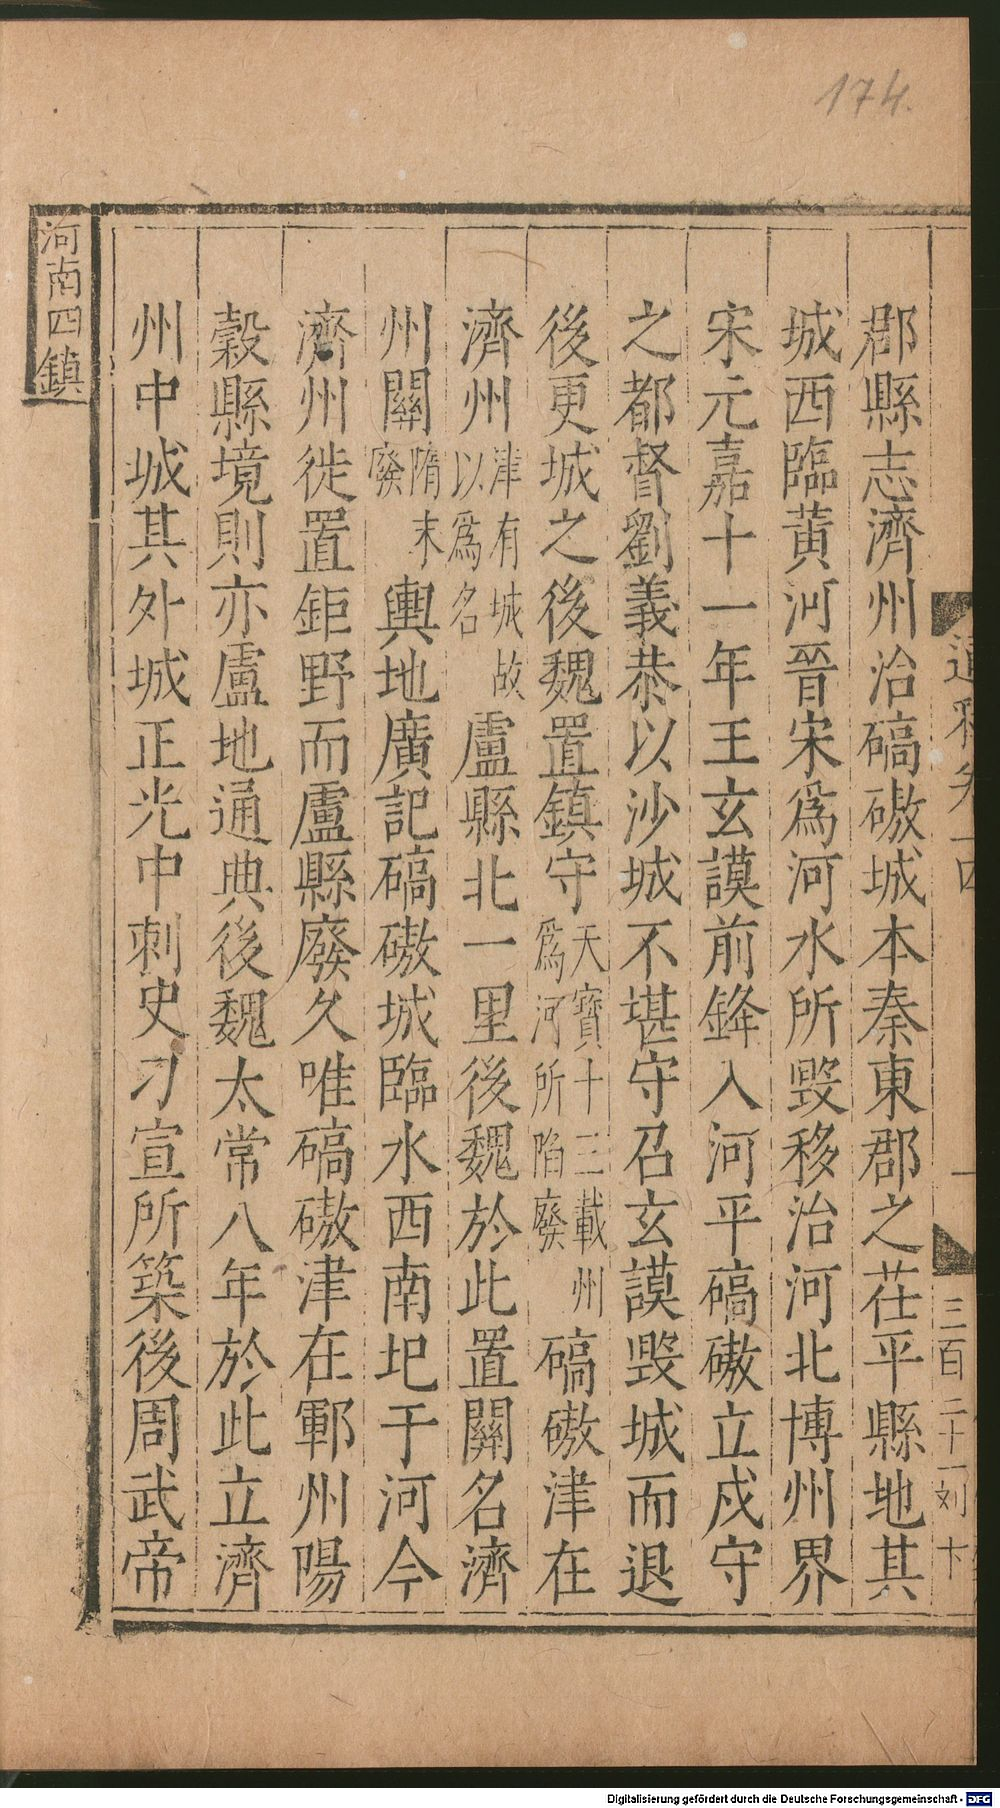 174.
郡縣志濟州治碻磝城本秦東郡之茌平縣地其
城西臨黃河晉宋爲河水所毀移治河北博州界
宋元嘉十一年王玄謨前鋒入河平碻磝立戍守
之都督劉義恭以沙城不堪守召玄謨毀城而退
後更城之後魏置鎮守天寶十三載州爲河所陷廢碻磝津在
濟州津有城故以爲名盧縣北一里後魏於此置關名濟
州關隋末廢輿地廣記碻磝城臨水西南圯于河今
濟州徙置鉅野而盧縣廢久唯碻磝津在鄆州陽
穀縣境則亦盧地通典後魏太常八年於此立濟
州中城其外城正光中刺史刁宣所築後周武帝
河南四鎮
通釋卷十四
三百二十一刘卞
Digitalisierung gefördert durch die Deutsche Forschungsgemeinschaft - DFG